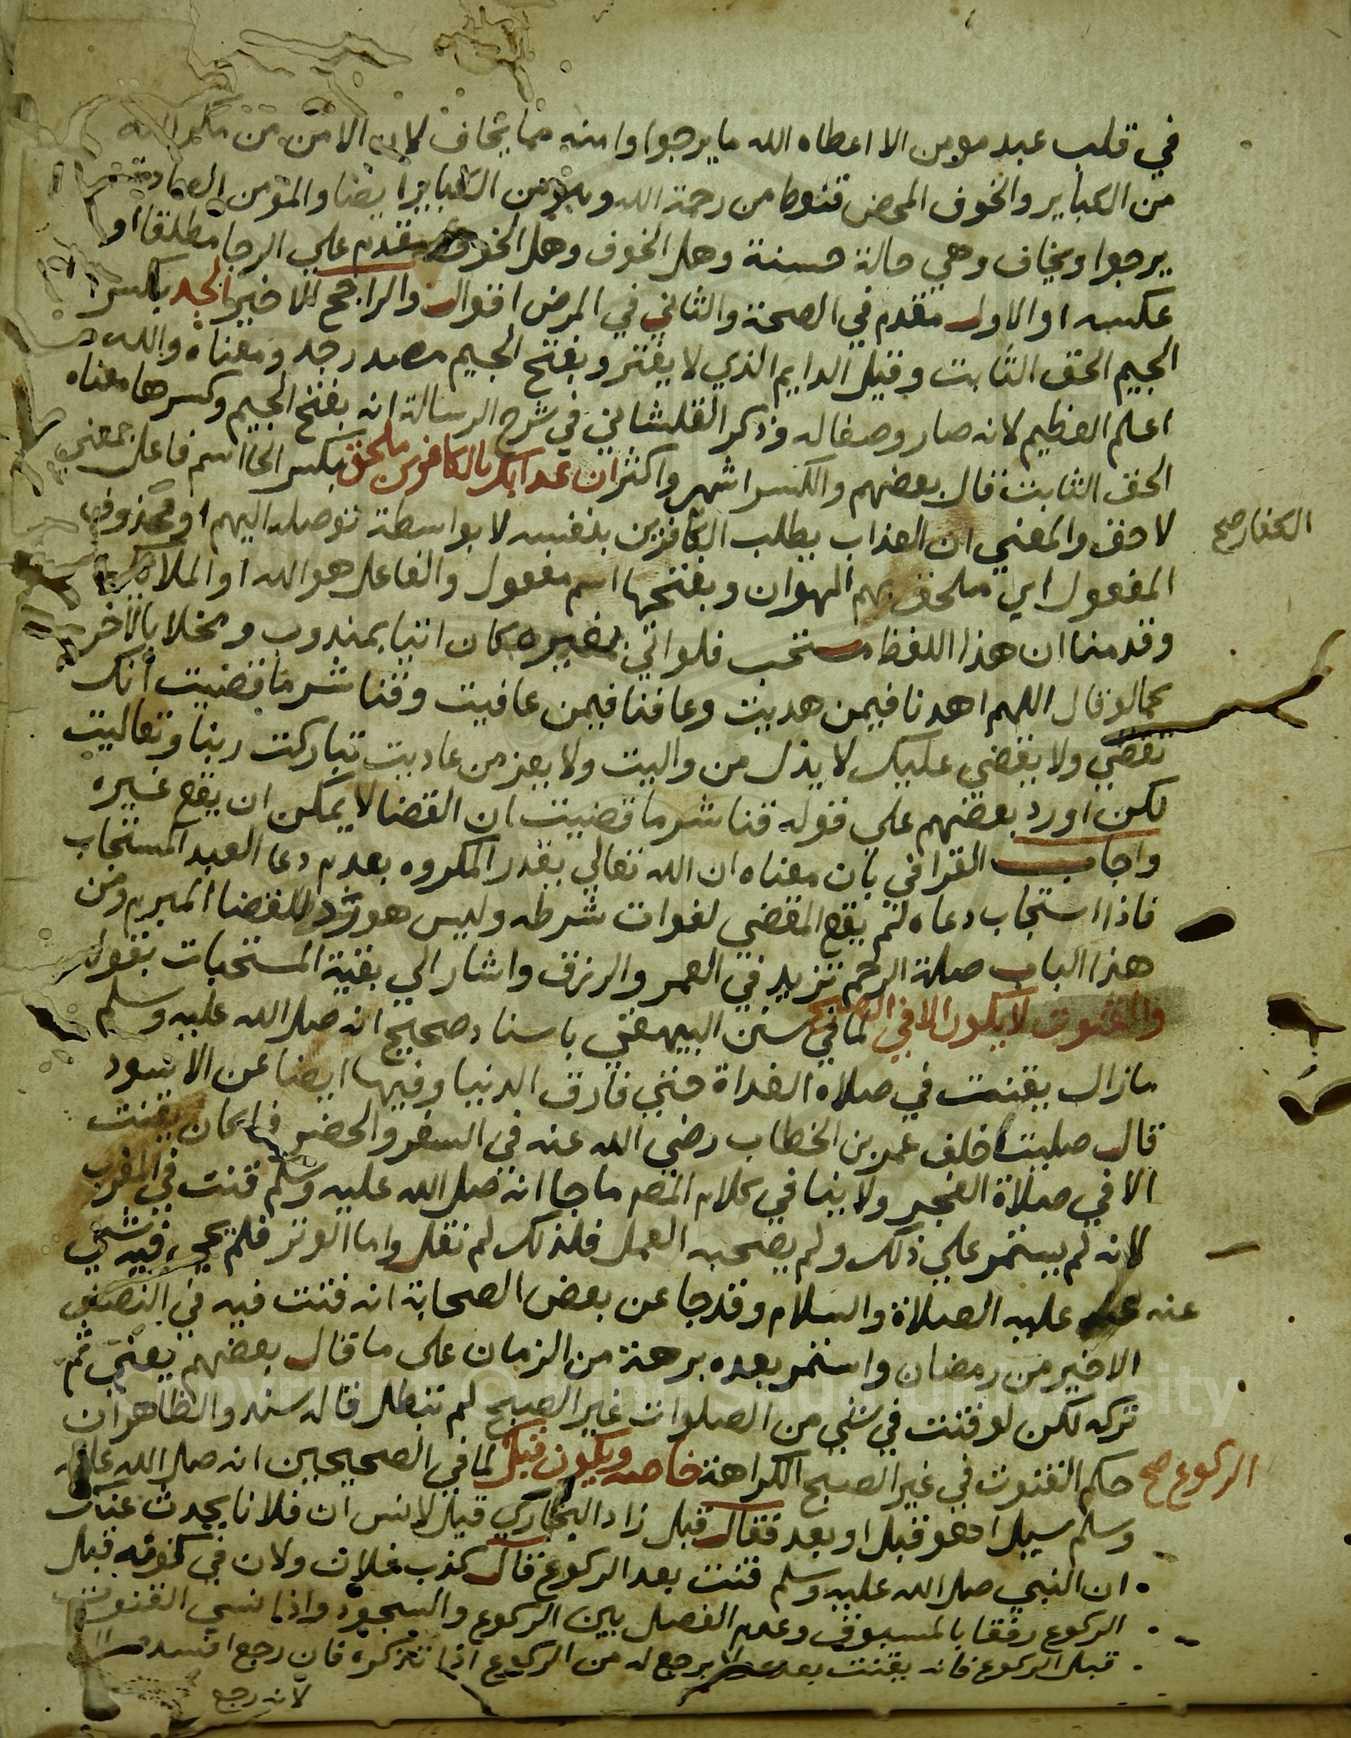 في قلب عبد مومن الا اعطاه الله ما يرجوا وامنه مما يخاف لان الامن من مكر الله
من الكباير والخوف المحض قنوط من رحمة الله وهو من الكباير ايضا والمؤمن الصادق
يرجوا ويخاف وهي حالة حسنة وهل الخوف وهل الخوف مقدم علي الرجا مطلقا او
عكسه او الاول مقدم في الصحة والثاني في المرض اقوال والراجح الاخير الجد بكسر
الجيم الحق الثابت وقيل الدايم الذي لا يفتر وبفتح الجيم مصدر جد ومعناه والله
اعلم العظيم لانه صار وصفا له وذكر القلشاني في شرح الرسالة انه بفتح الجيم وكسرها معناه
الحق الثابت قال بعضهم والكسر اشهر واكثر ان عذابك بالكافرين ملحق بكسر الحا اسم فاعل بمعني
لاحق والمعني ان العذاب يطلب الكافرين بنفسه لا بواسطة توصله اليهم او محذوف
الكفار صح
المفعول اي ملحق بهم الهوان وبفتحها اسم مفعول والفاعل هو الله او الملايكة
وقدمنا ان هذا اللفظ مستحب فلو اتي بغيره كان اتيا بمندوب ومخلا بالاخر
كما لو قال اللهم اهدنا فيمن هديت وعافنا فيمن عافيت وقنا شر ما قضيت انك
تقضي ولا يقضي عليك لا يذل من واليت ولا يعز من عاديت تباركت ربنا وتعاليت
لكن اورد بعضهم علي قوله قنا شر ما قضيت ان القضا لا يمكن ان يقع غيره
واجاب القرافي بان معناه ان الله تعالي يقدر المكروه بعدم دعا العبد المستجاب
فاذا استجاب دعاه لم يقع المقضي لفوات شرطه وليس هو رد للقضا المبرم ومن
هذا الباب صلة الرحم تزيد في العمر والرزق واشار الي بقية المستحبات بقوله
والقنوت لا يكون الا في الصبح لما في سنن البيهقي باسناد صحيح انه صلى الله عليه وسلم
مازال يقنت في صلاة الغداة حتي فارق الدنيا وفيها ايضا عن الاسود
قال صليت خلف عمر بن الخطاب رضي الله عنه في السفر والحضر فما كان يقنت
الا في صلاة الفجر ولا ينافي كلام المصم ما جا انه صلى الله عليه وسلم قنت في المغرب
لانه لم يستمر علي ذلك ولم يصحبه العمل فلذلك لم نقل واما الوتر فلم يجي فيه شي
عنه عليه الصلاة والسلام وقد جا عن بعض الصحابة انه قنت فيه في النصف
الاخير من رمضان واستمر بعده برهة من الزمان على ما قال بعضهم يعني ثم
تركه لكن لو قنت في شي من الصلوات غير الصبح لم تبطل قاله سند والظاهر ان
حكم القنوت في غير الصبح الكراهة خاصه ويكون قبل لما في الصحيحين انه صلى الله عليه
الركوع صح
وسلم سيل اهو قبل او بعد فقال قبل زاد البخاري قيل لانس ان فلانا يحدث عنك
ان النبي صلى الله عليه وسلم قنت بعد الركوع قال كذب فلان ولان في كونه قبل
الركوع رفقا بالمسبوق وعدم الفصل بين الركوع والسجود واذا نسي القنوت
قبل الركوع فانه يقنت بعده ولا يرجع له من الركوع اذا تذكره فان رجع افسد
لانه رجع